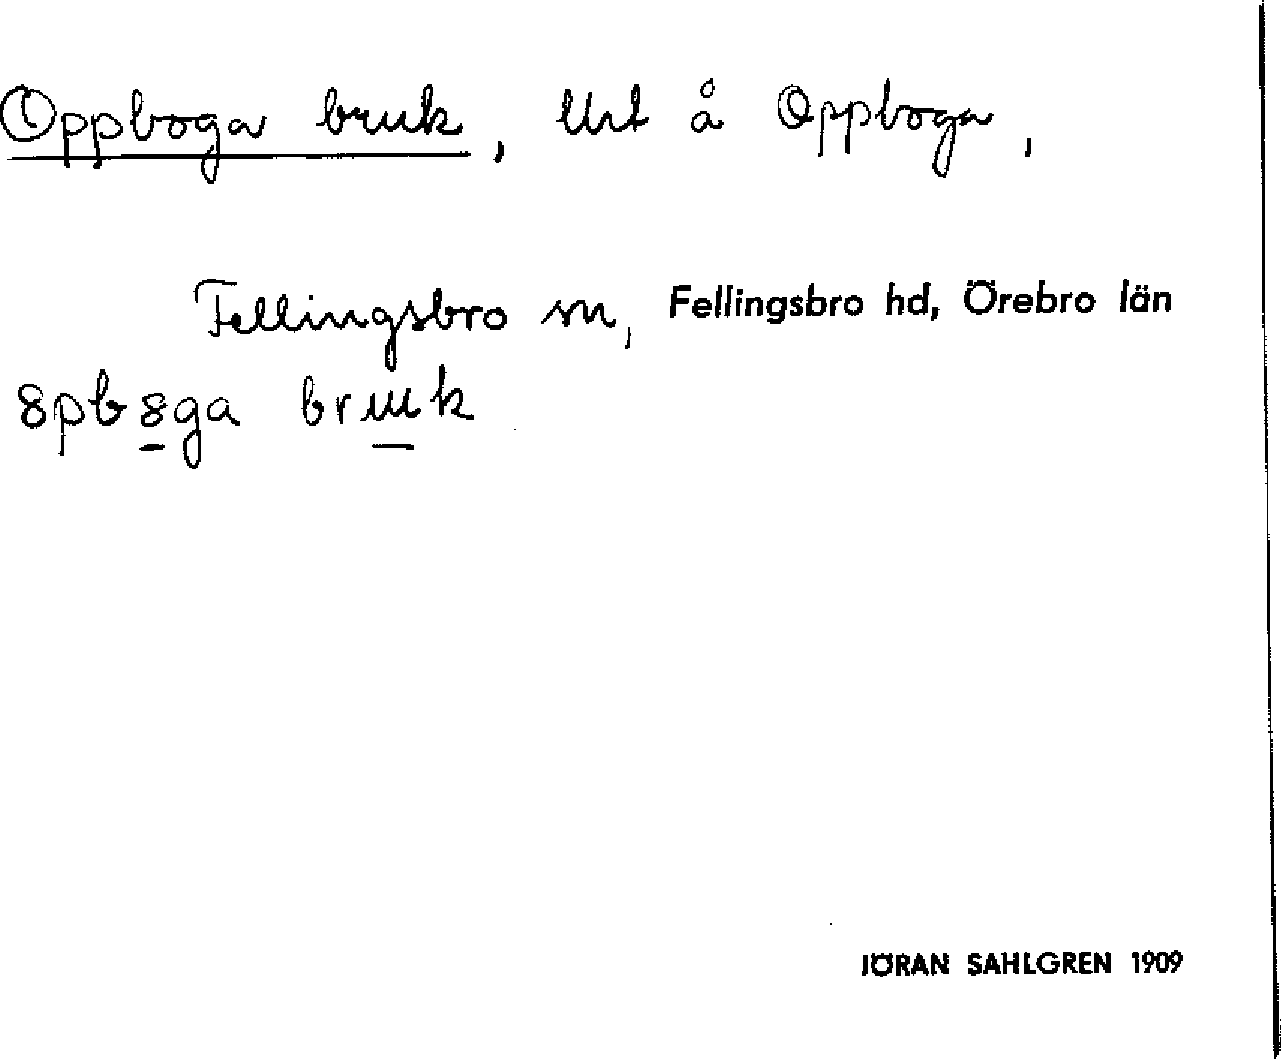 Oppboga bruk, Urt å Oppboga,
Fellingsbro sn, Fellingsbro hd, Örebro län
8pb8ga bruk
JÖRAN SAHLGREN 1909